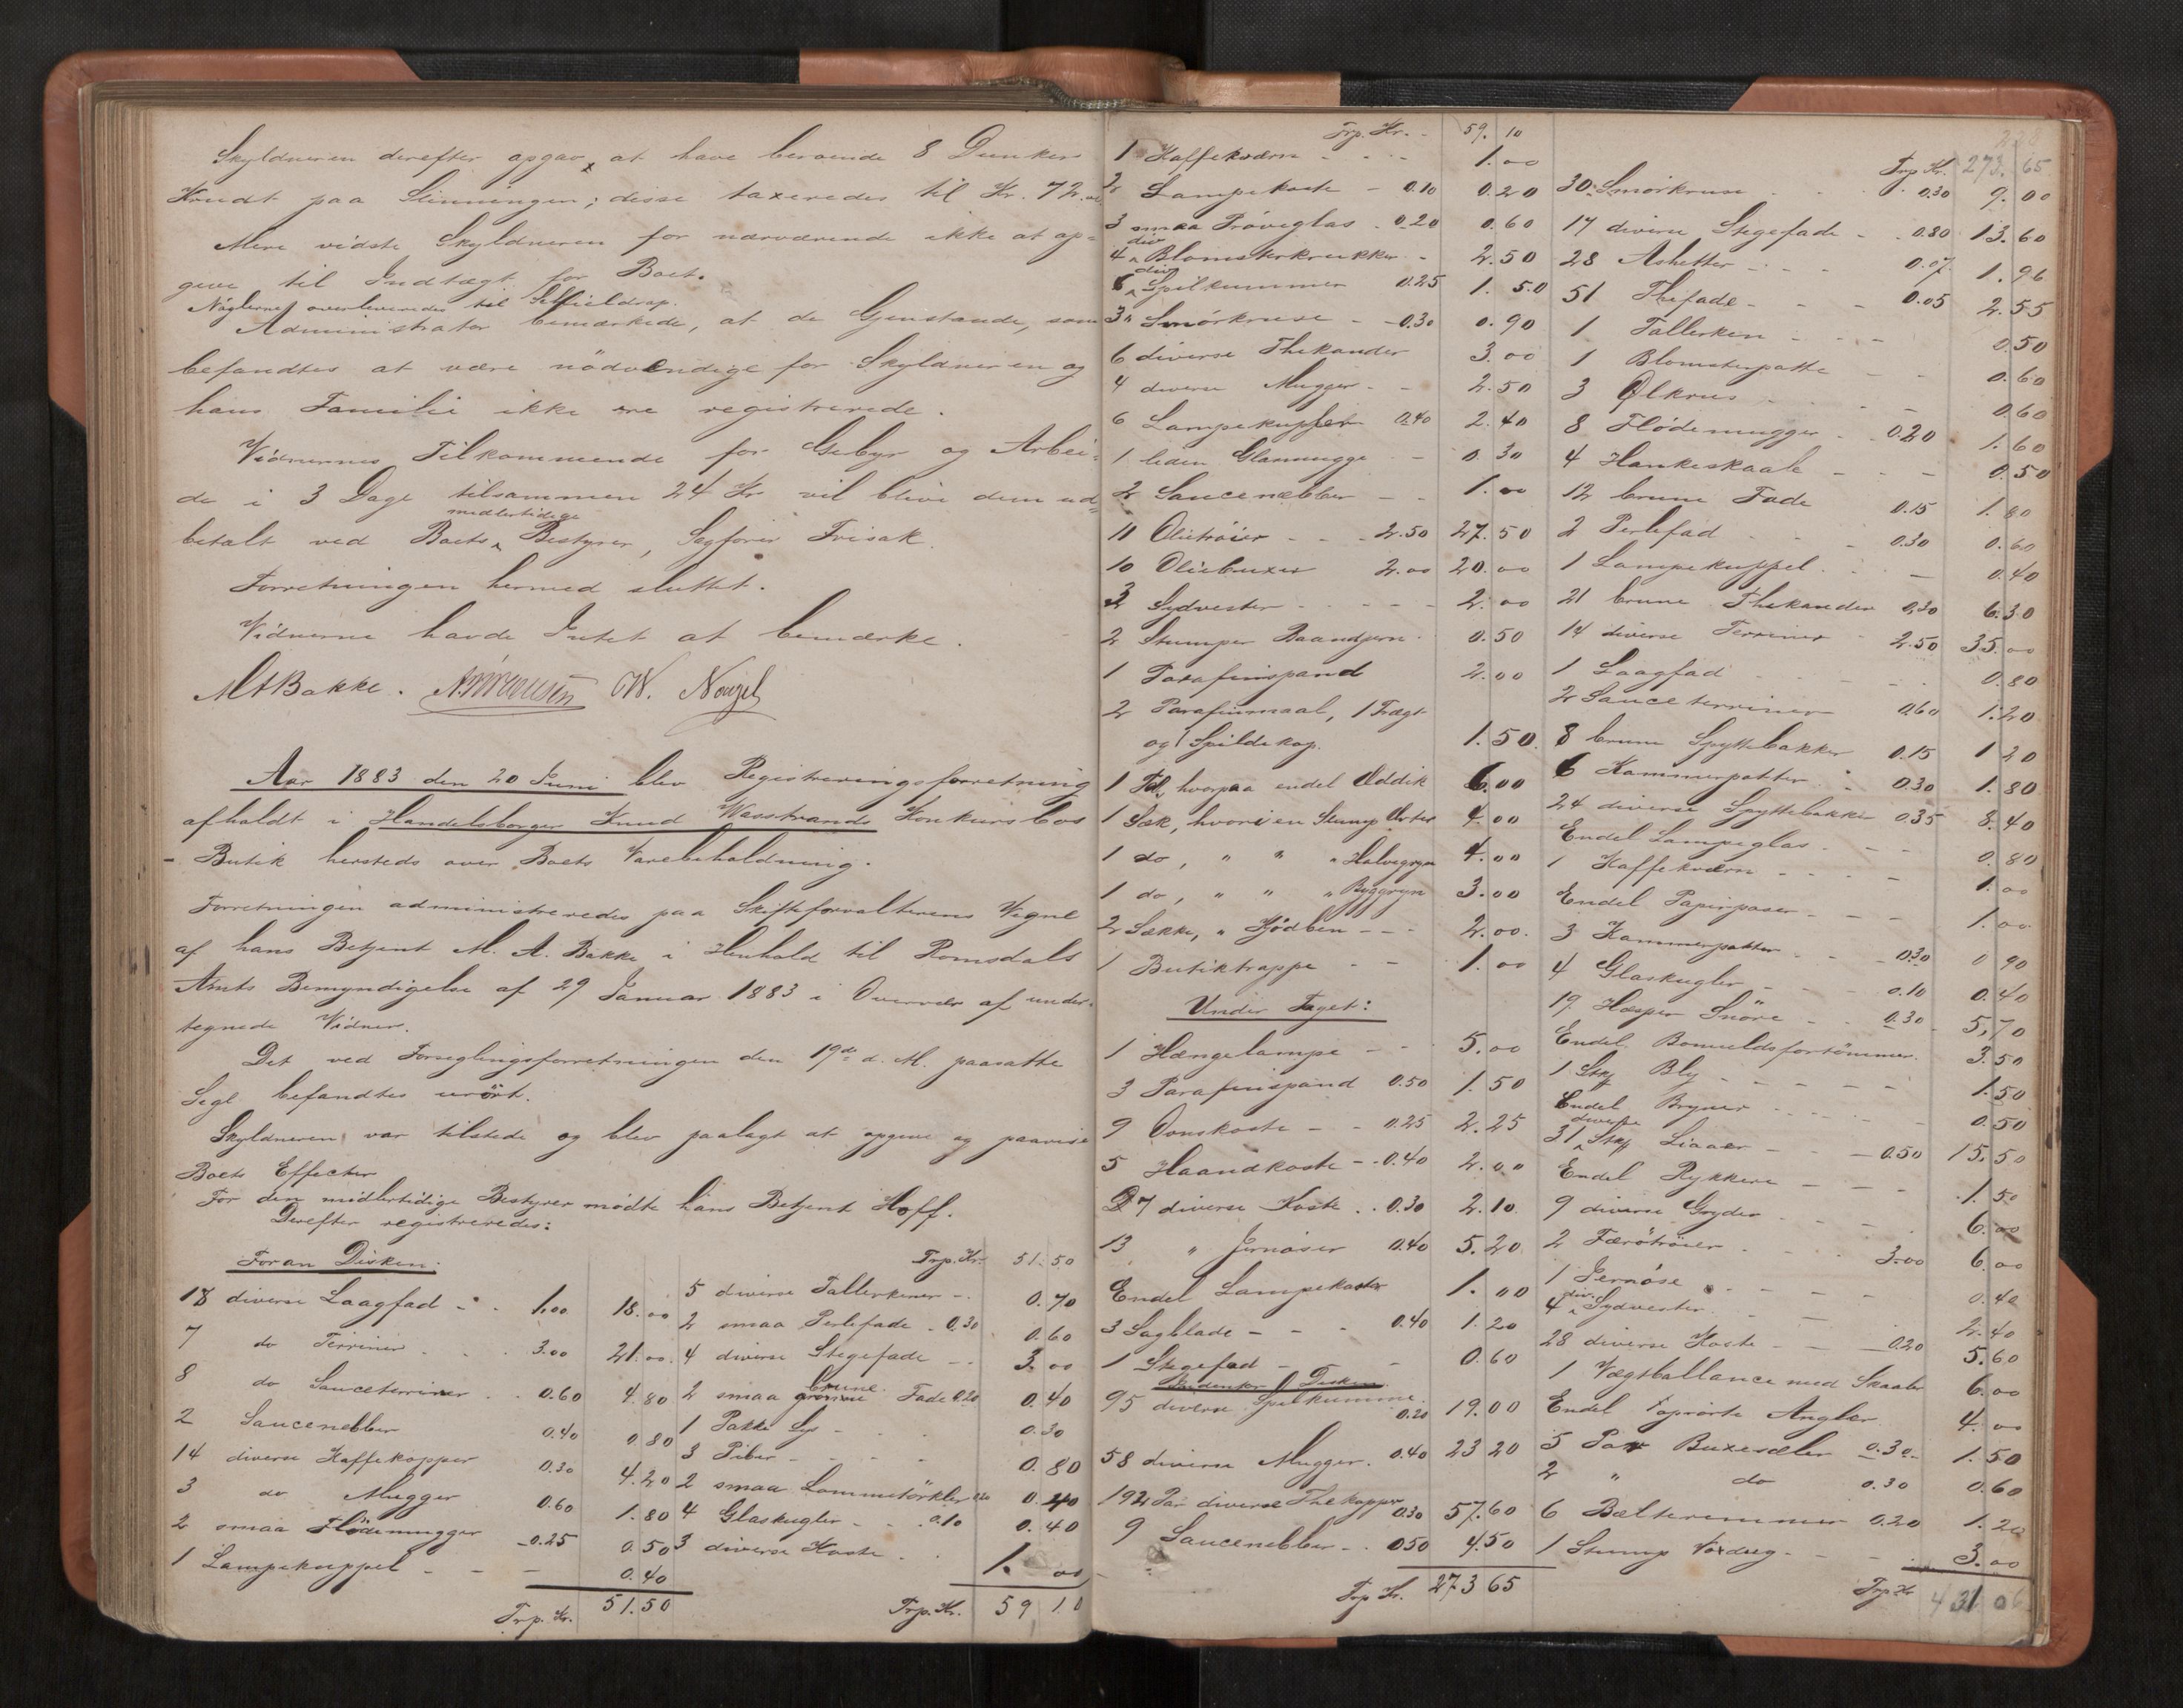 Skyldneren derefter opgav at have beroende 8 Dunker
Krudt paa Slinningen; disse taxeredes til Kr. 72.00
Mere vidste Skyldneren for nærværende ikke at op=
give til Indtægt for Boet.
Nøglerne overleveredes til
Administrator bemærkede, at de Gjenstande, som
befandtes at være nödvendige for Skyldneren og
hans Familie ikke ere registrerede.
Vidnernes Tilkommende for Gebyr og Arbei=
de i 3 Dage tilsammen 24 Kr vil blive dem ud=
midlertidige
betalt ved Boets Bestyrer, Sagförer Frisak.
Forretningen hermed sluttet.
Vidnerne havde Intet at bemærke.
MABakke. W. Nougel
Aar 1883 den 20 Juni blev Registreringsforretning
afholdt i Handelsborger Knud Wasstrands Konkursbos
Butik hersteds over Boets Varebeholdning.
Forretningen administreredes paa Skifteforvalterens Vegne
af hans Betjent M. A. Bakke i Henhold til Romsdals
Amts Bemyndigelse af 29 Januar 1883 i Overvær af under=
tegnede Vidner.
Det ved Forseglingsforretningen den 19de d. M. paasatte
Segl befandtes urört.
Skyldneren var tilstede og blev paalagt at opgive og paavise
Boets Effecter
For den midlertidige Bestyrer mødte hans Betjent Hoff.
Derefter registreredes:
Foran Disken:
18 diverse Laagfad - 1.00 18.00
7 do Terriner 3.00 21.00
8 do Sauceterriner 0.60 4.80
2 Saucenebber 0.40 0 80
14 diverse Kaffekopper 0.30 4.20
3 do Mugger 0.60 1.80
2 smaa Flödemugger 0.25 0.50
1 Lampekuppel - - - 0.40
Trp. Kr. 51.50
Trp. Kr. 51.50
5 diverse Tallerkener - 0.70
2 smaa Perlefade 0.30 0.60
4 diverse Stegefade - 3.00
brune
2 smaa Fade 0.20 0.40
1 Pakke Lys 0.30
3 Piber 0.80
2 smaa Lommetörkler 0.20 0.40
4 Glaskugler 0.10 0.40
3 diverse Koste 1.00
Trp. Kr. 59 10
Trp. Kr. 59.10
1 Kaffekværn 1.00
2 Lampekoste - 0.10 0.20
3 smaa Pröveglas 0.20 0.60
div
4 Blomsterkrukker 2.50
div
6 Spilkummer 0.25 1.50
3 Smörkruse - 0.30 0.90
6 diverse Thekander 3.00
4 diverse Mugger - 2.50
6 Lampekupler 0.40 2.40
1 liden Glasmugge - 0.30
2 Saucenebber - 1.00
11 Olietröier - 2.50 27.50
10 Oliebuxer 2.00 20.00
3 Sydvester 2.00
2 Stumper Baandjern 0.50
1 Parafinspand 2.00
2 Parafinmaal, 1 Trægt
og 1 Spildekop. 1.50
1 Fd, hvorpaa endel Eddik 6.00
1 Sæk, hvori en Slump Erter 4.00
1 do, " " " Halvegryn 4.00
1 do, " " " Byggryn 3.00
2 Sække, " Kjödben - - 2.00
1 Butiktrappe - - 1.00
Under Taget:
1 Hængelampe - 5.00
3 Parafinspand 0.50 1.50
9 Ovnskoste - 0.25 2.25
5 Haandkoste - 0.40 2.00
7 diverse Koste 0.30 2.10
13 " Jernöser 0.40 5.20
Endel Lampekoster 1.00
3 Sagblade - 0.40 1.20
1 Stegefad - 0.60
Disken.
95 diverse Spilkumme 0.20 19.00
58 diverse Mugger 0.40 23 20
192 Par diverse Thekopper 0.30 57.60
9 Saucenebber 0.50 4.50
Trp. Kr. 273 65
Trp. Kr. 273.65
30 Smörkruse 0.30 9.00
17 diverse Stegefade - 0.80 13.60
28 Ashetter 0.07 1.96
51 Thefade - 0.05 2.55
1 Tallerken 0.50
1 Blomsterpotte 0.60
3 Ølkrus 0.60
8 Flödemugger 0.20 1.60
4 Hankeskaale 0.50
12 brune Fade 0.15 1.80
2 Perlefad 0.30 0.60
1 Lampekuppel 0.40
21 brune Thekander 0.30 6.30
14 diverse Terriner 2.50 35.00
1 Laagfad 0.80
2 Sauceterriner 0.60 1.20
8 brune Spyttebakker 0.15 1 20
6 Kammerpotter 0.30 1.80
24 diverse Spyttebakker 0.35 8.40
Endel Lampeglas 0.80
1 Kaffekværn 1.00
Endel Papirposer 1.00
3 Kammerpotter 0.30 0 90
4 Glaskugler 0.10 0.40
19 Hesper Snöre 0.30 5,70
Endel Bomuldsfortömmer. 3.50
1 Stkj Bly 1.50
Endel Bryner 0.50
diverse
31 Stkj Liaaer 0.50 15.50
Endel Rykkere 1.50
9 diverse Gryder 6.00
2 Færötröier 3.00 6.00
1 Jernöse 0.40
div.
4 Sydvester 2.40
28 diverse Koste 0.20 5.60
1 Vægtballance med Skaaler 6.00
Endel Angler 4.00
5 Par Buxesæler 0.30 1.50
2 " do 0.30 0.60
6 Bælteremmer 0.20 1.20
1 Stump Voxdug 3.00
Trp Kr 431 06